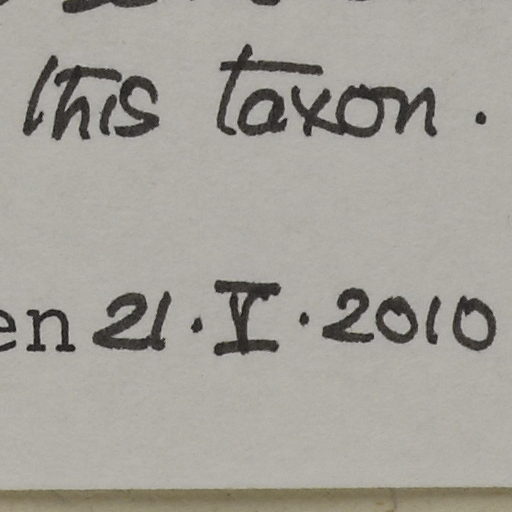 this taxon.
en 21·V·2010